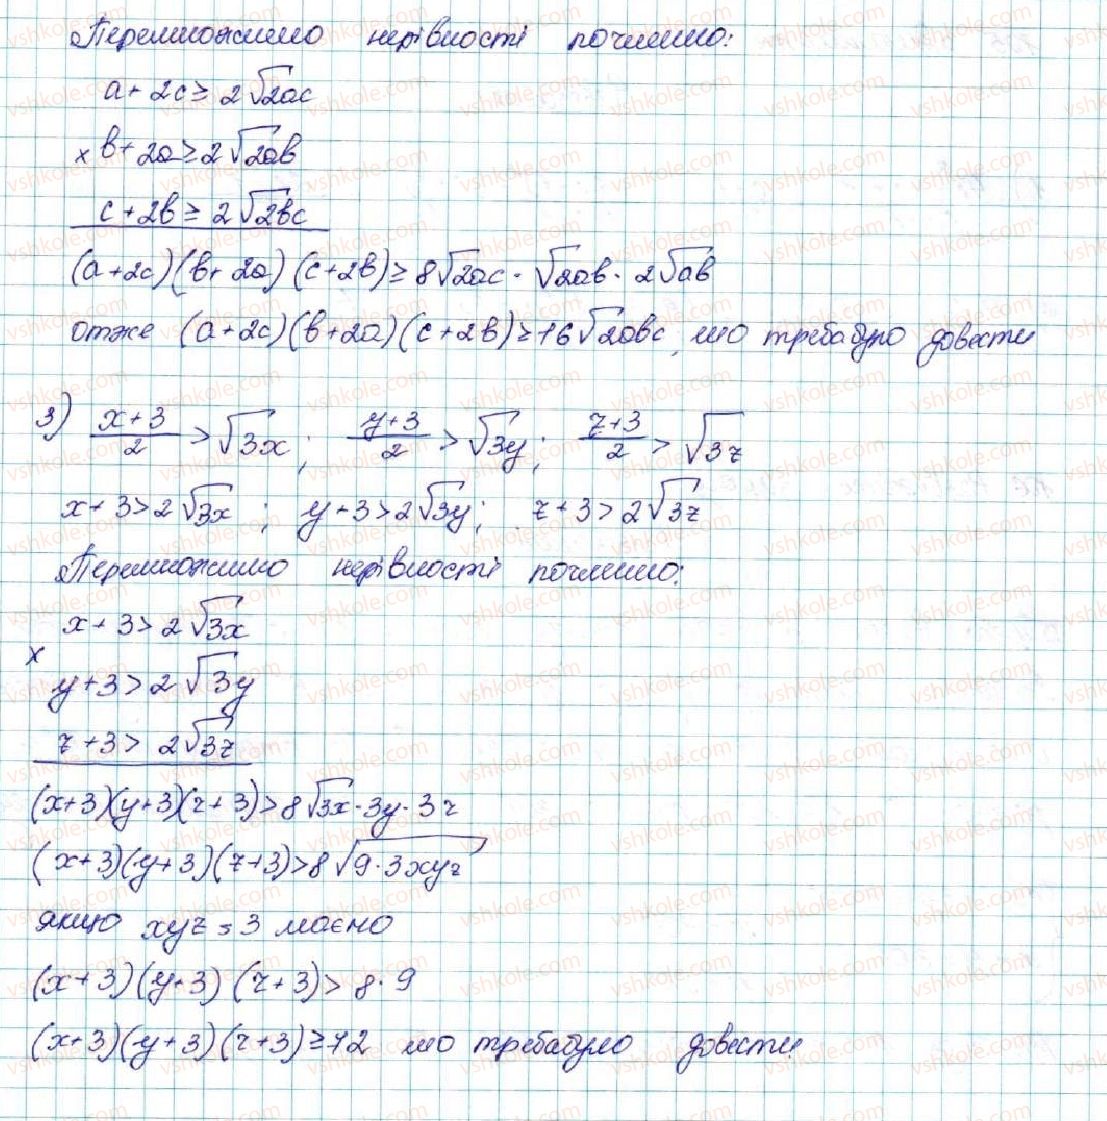 Перемножимо нерівності почленно:
a + 2c ≥ 2√2ac
× b + 2a ≥ 2√2ab
c + 2b ≥ 2√2bc
(a + 2c)(b + 2a)(c + 2b) ≥ 8√2ac · √2ab · 2√ab
отже (a + 2c)(b + 2a)(c + 2b) ≥ 16√2abc, що треба було довести
3) (x + 3)/2 > √3x ; (y + 3)/2 > √3y ; (z + 3)/2 > √3z
x + 3 > 2√3x ; y + 3 > 2√3y ; z + 3 > 2√3z
Перемножимо нерівності почленно:
x + 3 > 2√3x
×
y + 3 > 2√3y
z + 3 > 2√3z
(x + 3)(y + 3)(z + 3) > 8√3x · 3y · 3z
(x + 3)(y + 3)(z + 3) > 8√9 · 3xyz
якщо xyz = 3 маємо
(x + 3)(y + 3)(z + 3) > 8 · 9
(x + 3)(y + 3)(z + 3) ≥ 72 що треба було довести